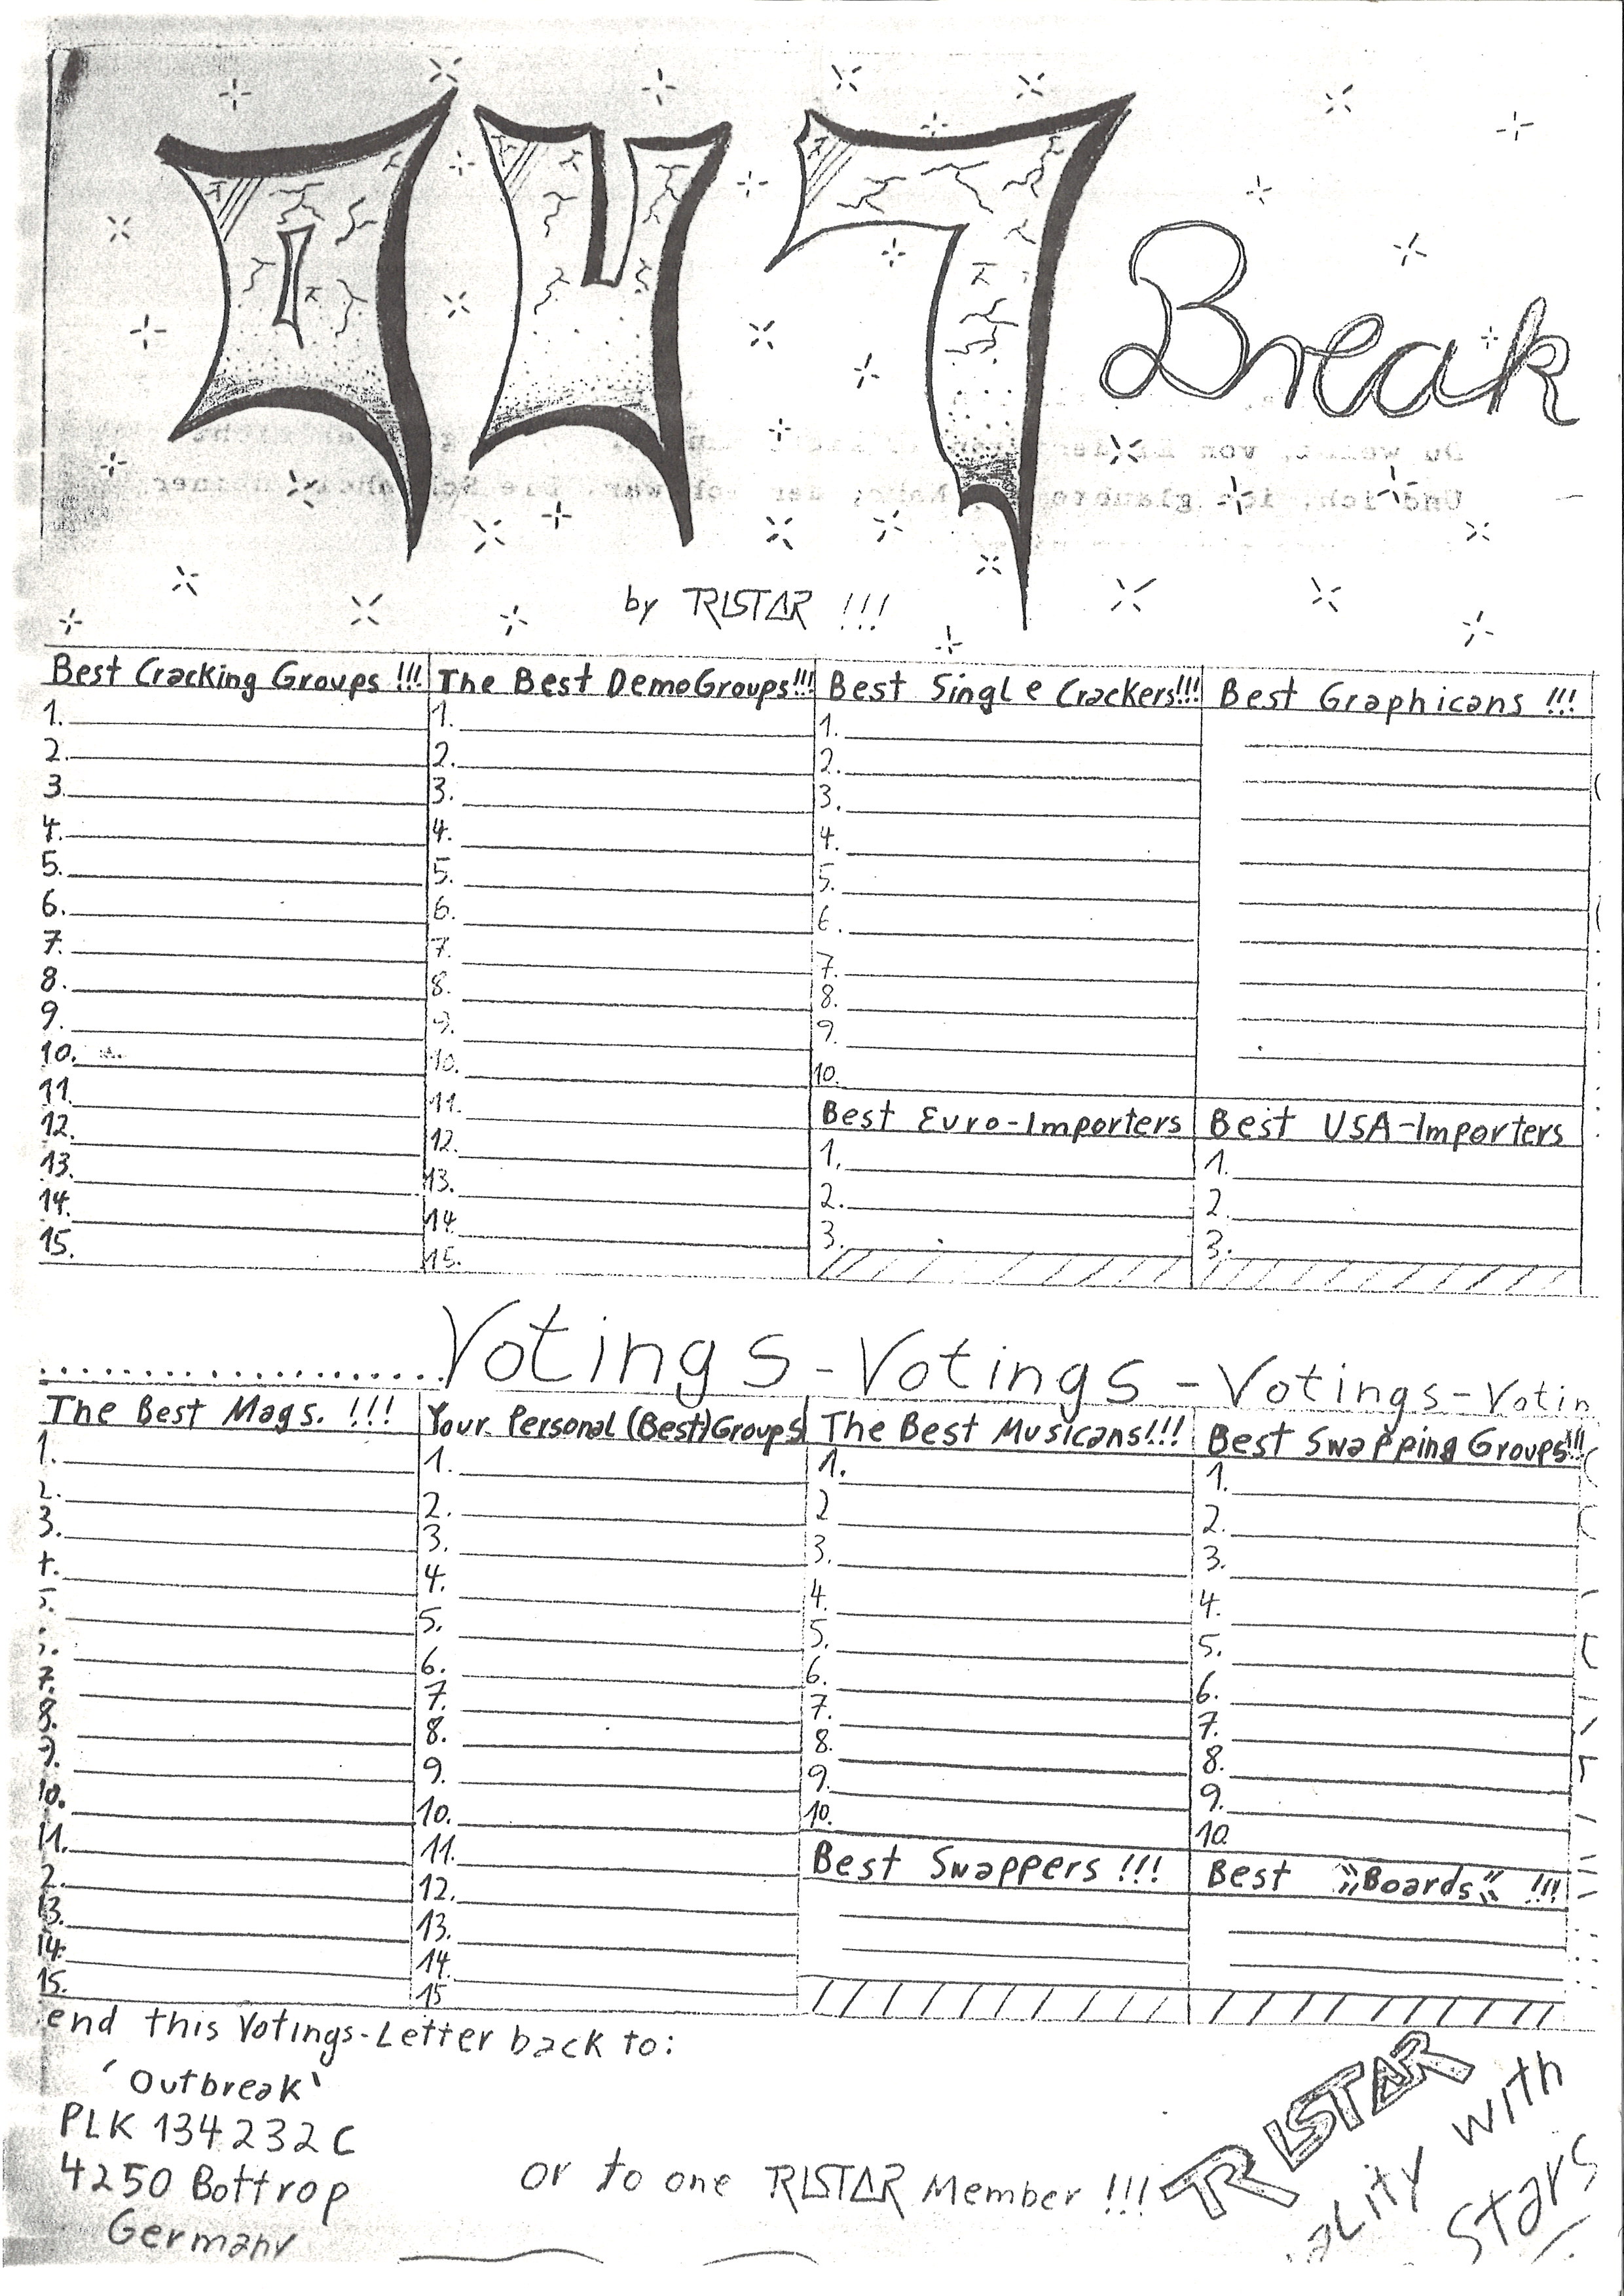 OUT
Break
by TRISTAR !!!
Best Cracking Groups !!!
1.
2.
3.
4.
5.
6.
7.
8.
9.
10.
11.
12.
13.
14.
15.
The Best DemoGroups!!!
1.
2.
3.
4.
5.
6.
7.
8.
9.
10.
11.
12.
13.
14.
15.
Best Single Crackers!!!
1.
2.
3.
4.
5.
6.
7.
8.
9.
10.
Best Graphicans !!!
Best Euro-Importers
1.
2.
3.
Best USA-Importers
1.
2.
3.
....................Votings - Votings - Votings - Votin
The Best Mags. !!!
1.
2.
3.
7.
8.
9.
10.
11.
2.
13.
14.
15.
Your Personal (Best) Groups
1.
2.
3.
4.
5.
6.
7.
8.
9.
10.
11.
12.
13.
14.
15
The Best Musicans!!!
1.
2
3.
4.
5.
6.
7.
8.
9.
10.
Best Swapping Groups!!!
1.
2.
3.
4.
5.
6.
7.
8.
9.
10.
Best Swappers !!!
Best "Boards" !!!
end this Votings-Letter back to:
'Outbreak'
PLK 134232C
4250 Bottrop
Germany
or to one TRISTAR Member !!!
TRISTAR
ality with
Stars